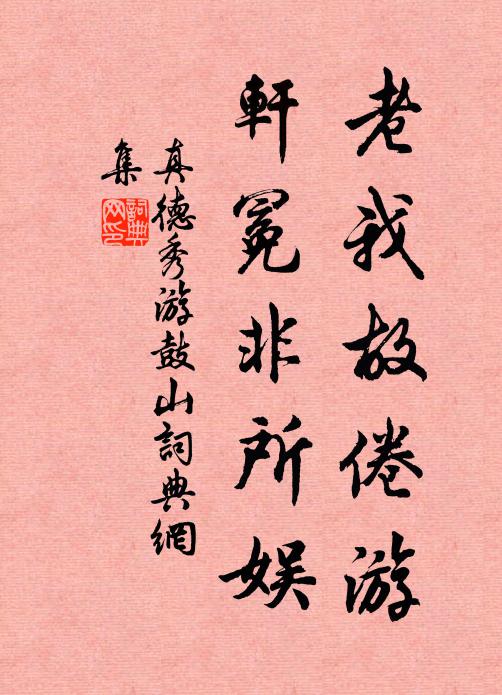 老我故倦游
軒冕非所娱
真德秀游鼓山詞典網
集
詞典網印